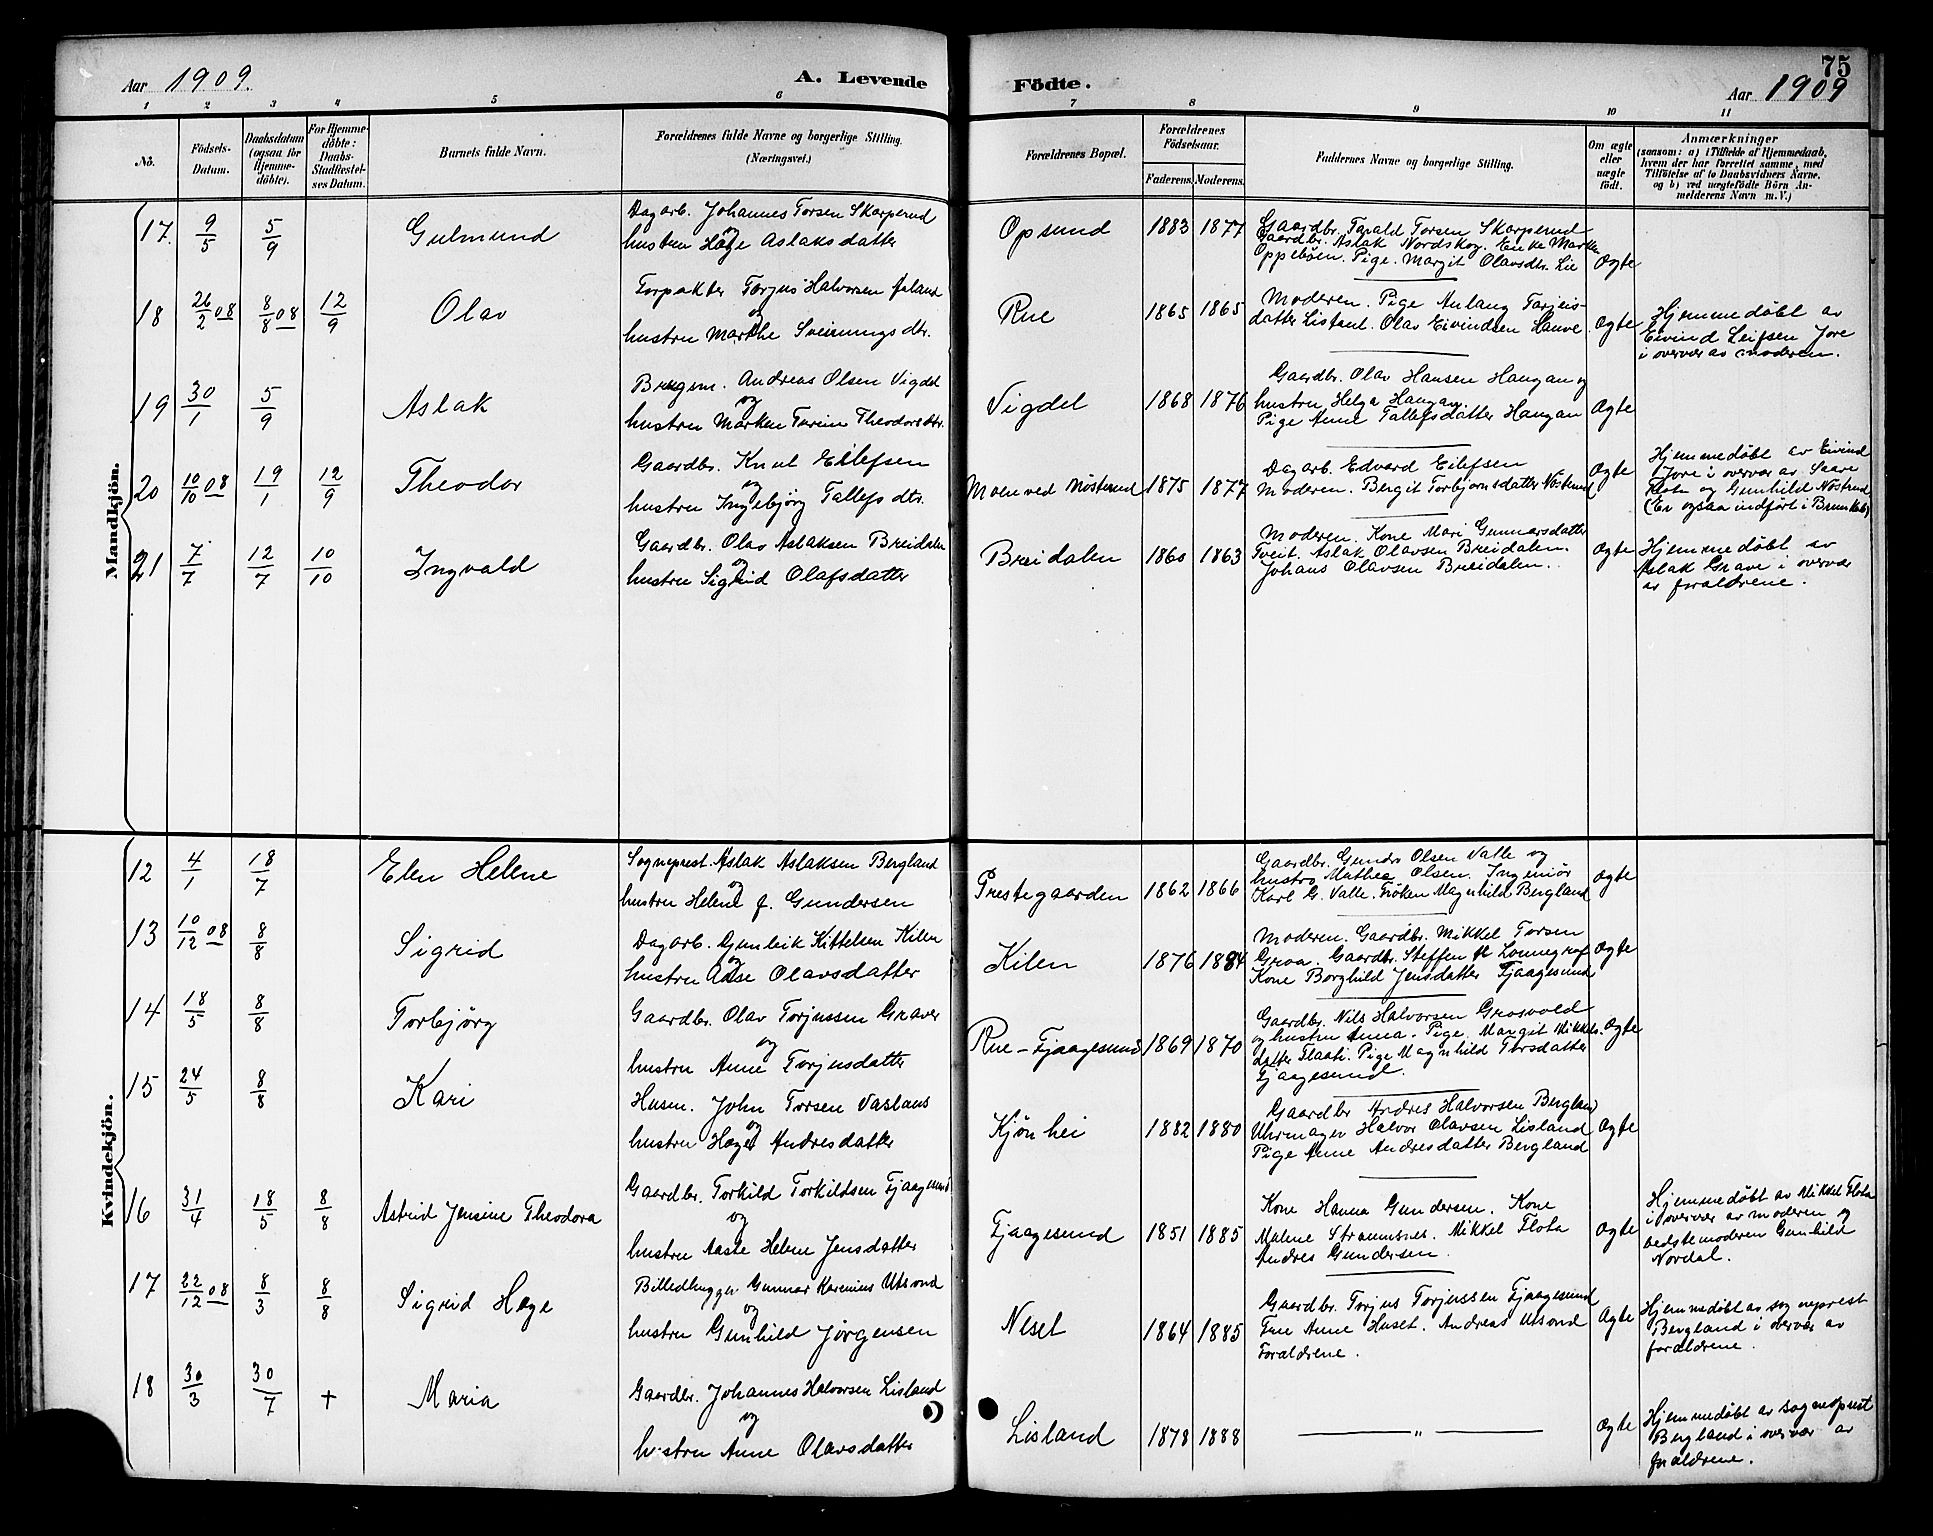 Aar 1909.
A. Levende
Födte.
75
Aar 1909
1 2 3 4 5 6 7 8 9 10 11
No.
Födsels-Datum.
Daabsdatum (ogsaa for Hjemmedöbte).
For Hjemmedöbte: Daabs-Stadfestelses Datum.
Barnets fulde Navn.
Forældrenes fulde Navne og borgerlige Stilling. (Næringsvei.)
Forældrenes Bopæl.
Forældrenes Födselsaar.
Faderens. Moderens.
Faddernes Navne og borgerlige Stilling.
Om ægte eller uægte födt.
Anmærkninger
(saasom: a) i Tilfælde af Hjemmedaab,
hvem der har forrettet samme, med
Tilföielse af to Daabsvidners Navne.
og b) ved uægtefödte Börn An-
melderens Navn m.V.)
Mandkjön.
17. 9/5 5/9 Gulmund
Dagarb. Johannes Torsen Skarperud
og
hustru Hæge Aslaksdatter
Opsund 1883 1877
Gaardbr. Tarald Torsen Skarperud
Gaardbr. Aslak Nordskog. Enke Marthe
Oppeböen. Pige. Margit Olavsdtr. Lie
Ægte
18 26/2 08 8/8 08 12/9 Olav
Forpakter Torjus Halvorsen
og
hustru Marthe Sveinungsdtr.
Rue 1865 1865
Moderen. Pige Aslaug Tarjeis-
datter Listaul. Olav Eivindsen Hauve
Ægte
Hjemmedøbt av
Eivind Leifsen Jore
i overvær av moderen.
19 30/1 5/9 Aslak
Andreas Olsen Vigdel
og
hustru Marken Turine Theodorsdtr.
Vigdel 1868 1876
Gaardbr. Olav Hansen Haugan og
hustru Helga Haugan.
Pige Anne Tallefsdatter Haugan
Ægte
20 10/10 08 19/1 12/9 Theodor
Gaardbr. Knut Eilefsen
og
hustru Ingebjørg Tallefsdtr.
Moen ved Nösterud 1875 1877
Dagarb. Edvard Eilefsen
Moderen. Bergit Torbjørnsdatter Nösterud
Ægte
Hjemmedøbt av Eivind
Jore i overvær av Saave
Flota og Gunhild Nöstrud
(Er ogsaa indført i Brunkeb)
21 7/7 12/7 10/10 Ingvald
Gaardbr. Olav Aslaksen Breidalen
og
hustru Sigrid Olafsdatter
Breidalen 1860 1863
Moderen. Kone Mari Gunnarsdatter
Tveit. Aslak Olavsen Breidalen.
Johans Olavsen Breidalen.
Ægte
Hjemmedøbt av
Aslak Grave i overvær
av forældrene.
Kvindekjön.
12 4/1 18/7 Elen Helene
Sogneprest. Aslak Aslaksen Bergland
og
hustru Helene f. Gundersen
Prestegaarden 1862 1866
Gaardbr. Gundro Olsen Valle og
hustro Mathea Olsen. Ingeniør
Karl G. Valle. Frøken Magnhild Bergland
Ægte
13 10/12 08 8/8 Sigrid
Dagarb. Gunleik Kittelsen Kilen
og
hustru Aase Olavsdatter
Kilen 1876 1884
Moderen. Gaardbr. Mikkel Torsen
Groa. Gaardbr. Steffen Lonnegraf
Kone Borghild Jensdatter Fjaagesund
Ægte
14 18/5 8/8 Torbjørg
Gaardbr. Olav Torjussen Graver
og
hustru Anne Torjusdatter
Rue - Fjaagesund 1869 1870
Gaardbr. Nils Halvorsen Grosvold
og hustru Anna. Pige. Margit Mikkels-
datter Flaati. Pige Magnhild Torsdatter
Fjaagesund.
Ægte
15 24/5 8/8 Kari
Husm. John Torsen Vaslaus
og
hustru Hæge Andresdatter
Kjönhei 1882 1880
Gaardbr Andres Halvorsen Bergland
Uhrmager Halvor Olavsen Lisland
Pige Anne Andresdatter Bergland
Ægte
16 31/4 18/5 8/8 Astrid Jensine Theodora
Gaardbr. Torkild Torkildsen Fjaagesund
og
hustru Aaste Helene Jensdatter
Fjaagesund 1851 1885
Kone Hanna Gundersen. Kone
Malene Straumsnes. Mikkel Flota
Andres Gundersen.
Ægte
Hjemmedøbt av Mikkel Flota
i overvær av moderen og
bedstemoderen Gunhild
Nordal.
17 22/12 08 8/3 8/8 Sigrid Hæge
Billedhugger Gunnar Karenius Utsond
og
hustru Gunhild Jørgensen
Neset 1864 1885
Gaardbr. Torjus Torjussen Fjaagesund
Frue Anne Huset. Andreas Utsond
Forældrene.
Ægte
Hjemmedøbt av sogneprest
Bergland i overvær av
forældrene.
18 30/3 30/7 + Maria
Gaardbr. Johannes Halvorsen Lisland
og
hustru Anne Olavsdatter
Lisland 1878 1888
— „ —
Ægte
Hjemmedøbt av sogneprest
Bergland i overvær av
forældrene.